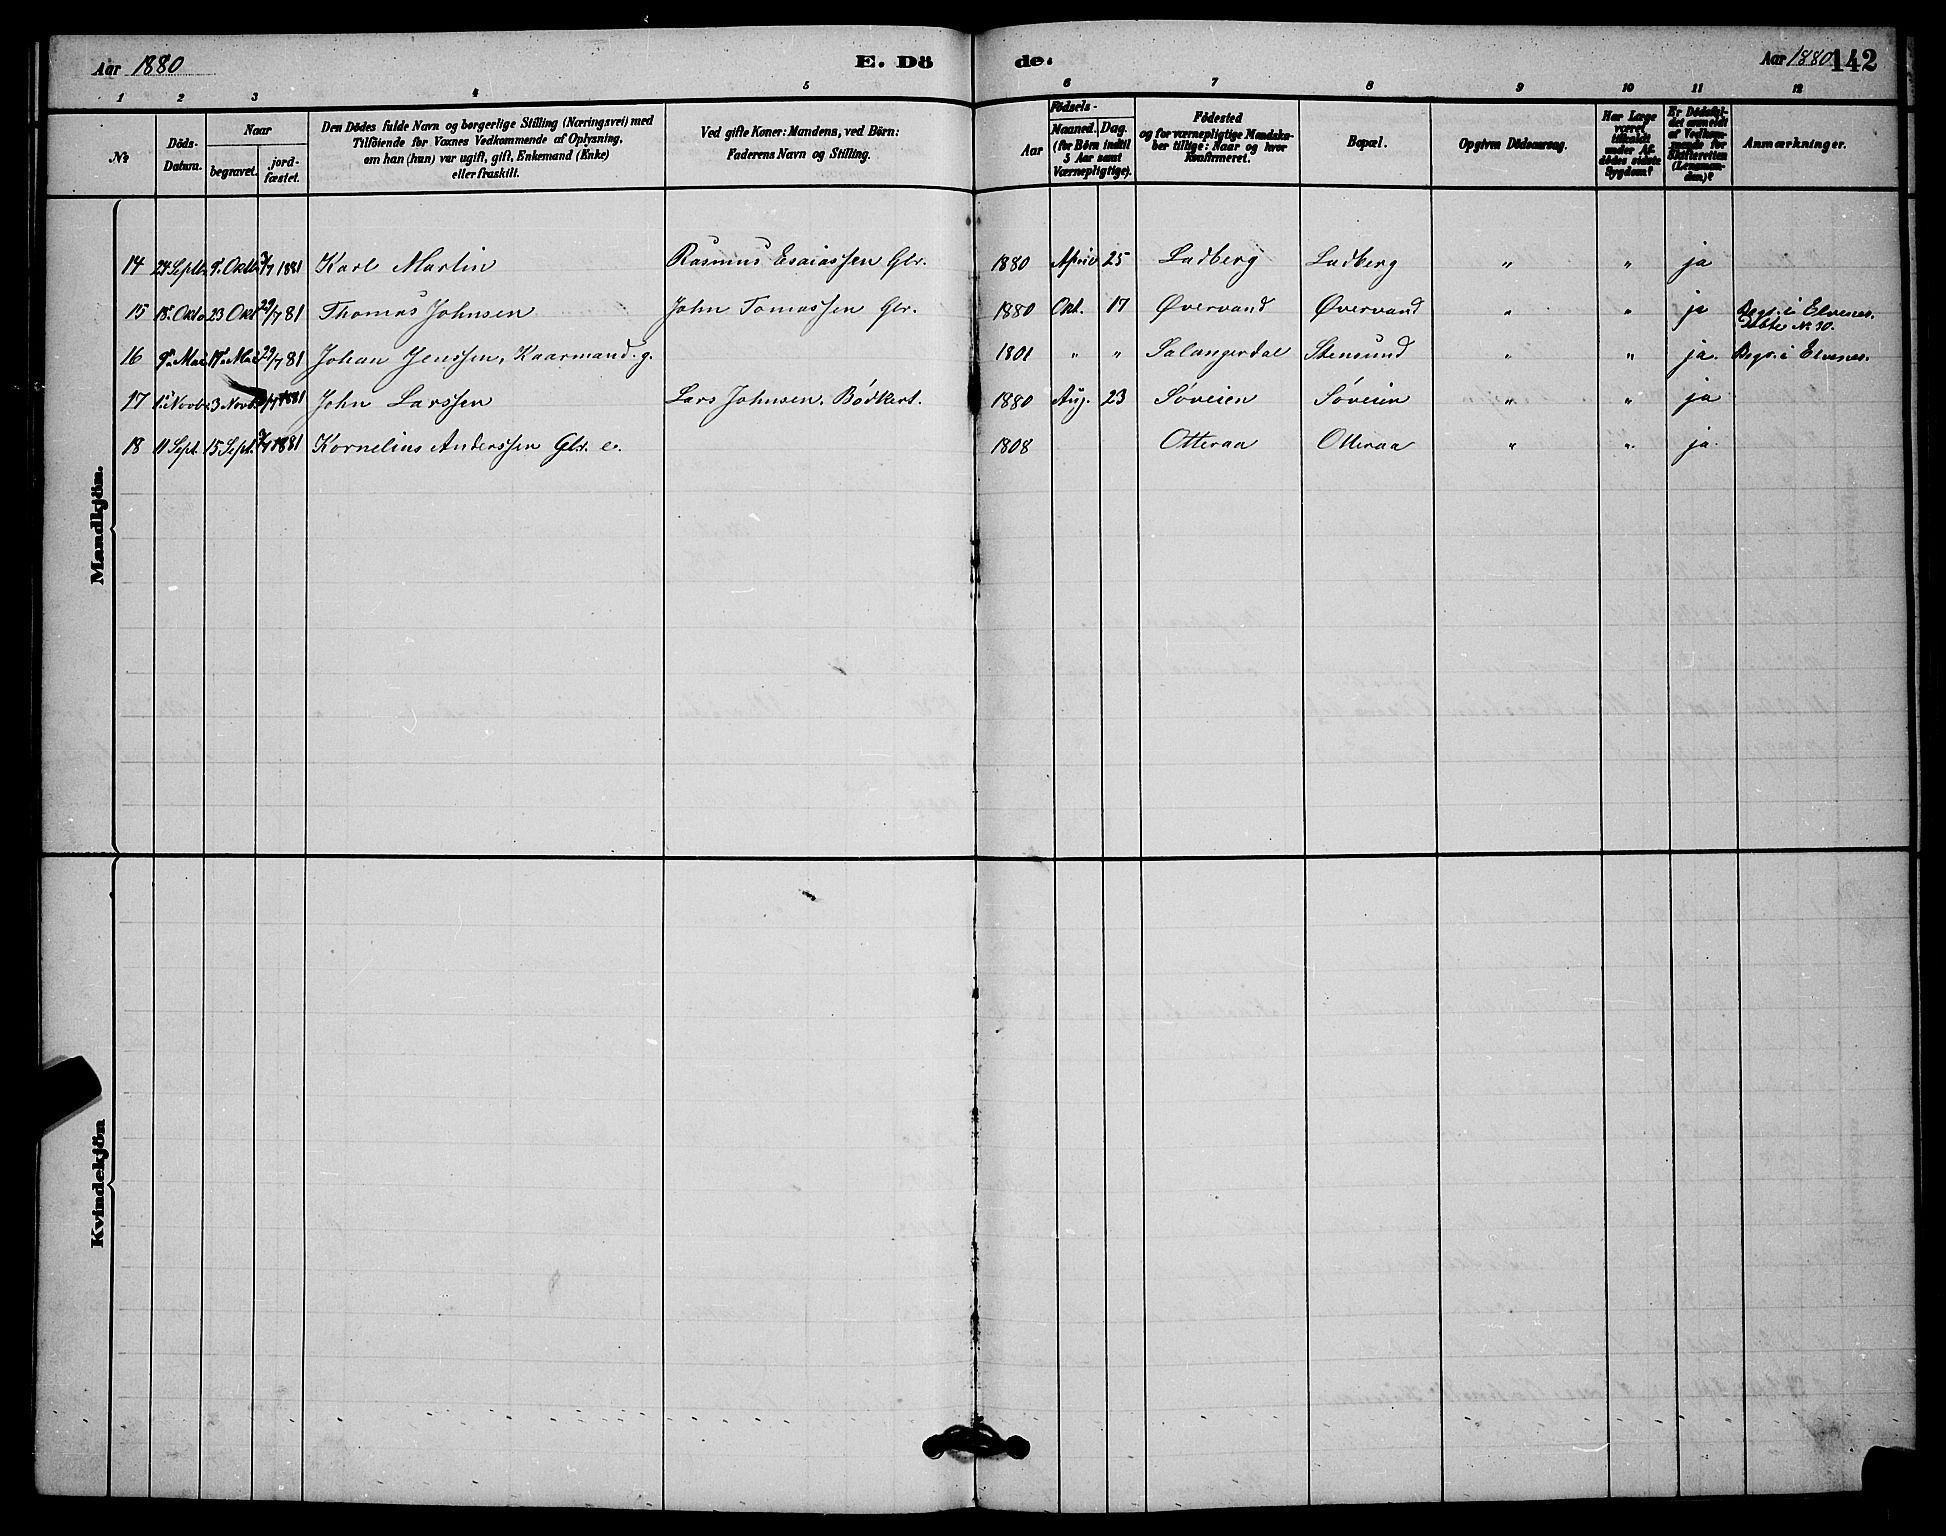 Aar 1880
E. Dö
de.
Aar 1880
142
1 2 3 4 5 6 7 8 9 10 11 12
No
Döds-
Datum.
Naar
begravet.
jord-
fæstet.
Den Dödes fulde Navn og borgerlige Stilling (Næringsvei) med
Tilföiende for Voxnes Vedkommende af Oplysning,
om han (hun) var ugift, gift, Enkemand (Enke)
eller fraskilt.
Ved gifte Koner: Mandens, ved Börn:
Faderens Navn og Stilling.
Födsels-
Aar
Maaned. Dag.
(for Börn indtil
5 Aar samt
Værnepligtige).
Födested
og for værnepligtige Mandska-
ber tillige: Naar og hvor
konfirmeret.
Bopæl.
Opgiven Dödsaarsag.
Har Læge
været
tilkaldt
under Af-
dödes sidste
Sygdom?
Er Dödsfal-
det anmeldt
af Vedkom-
mende for
Skifteretten
(Lensman-
den)?
Anmærkninger.
Mandkjön.
14 24 Septb. 9. Oktb. 1881 Karl Martin Rasmus Esaiassen Gbr. 1880 April 25 Ladberg Ladberg " " ja
15 18. Oktb 23 Okt 29/7 81 Thomas Johnsen John Tomassen Gbr. 1880 Okt. 17 Øvervand Øvervand " " ja Begr. i Elvenes.
Døbte No. 30.
16 9. Mai 17. Mai 29/7 81 Johan Jenssen, Kaarmand. g. 1801 " " Salangerdal Stensund " " ja. Begr. i Elvenes.
17 1. Novb. 3 Novb. 1881 John Larssen Lars Johnsen, Bødkert. 1880 Aug. 23 Søveien Søveien " " ja
18 11 Sept. 15 Sept. 1881 Kornelius Anderssen Gbr. e. 1808 Otteraa Otteraa " " ja.
Kvindekjön